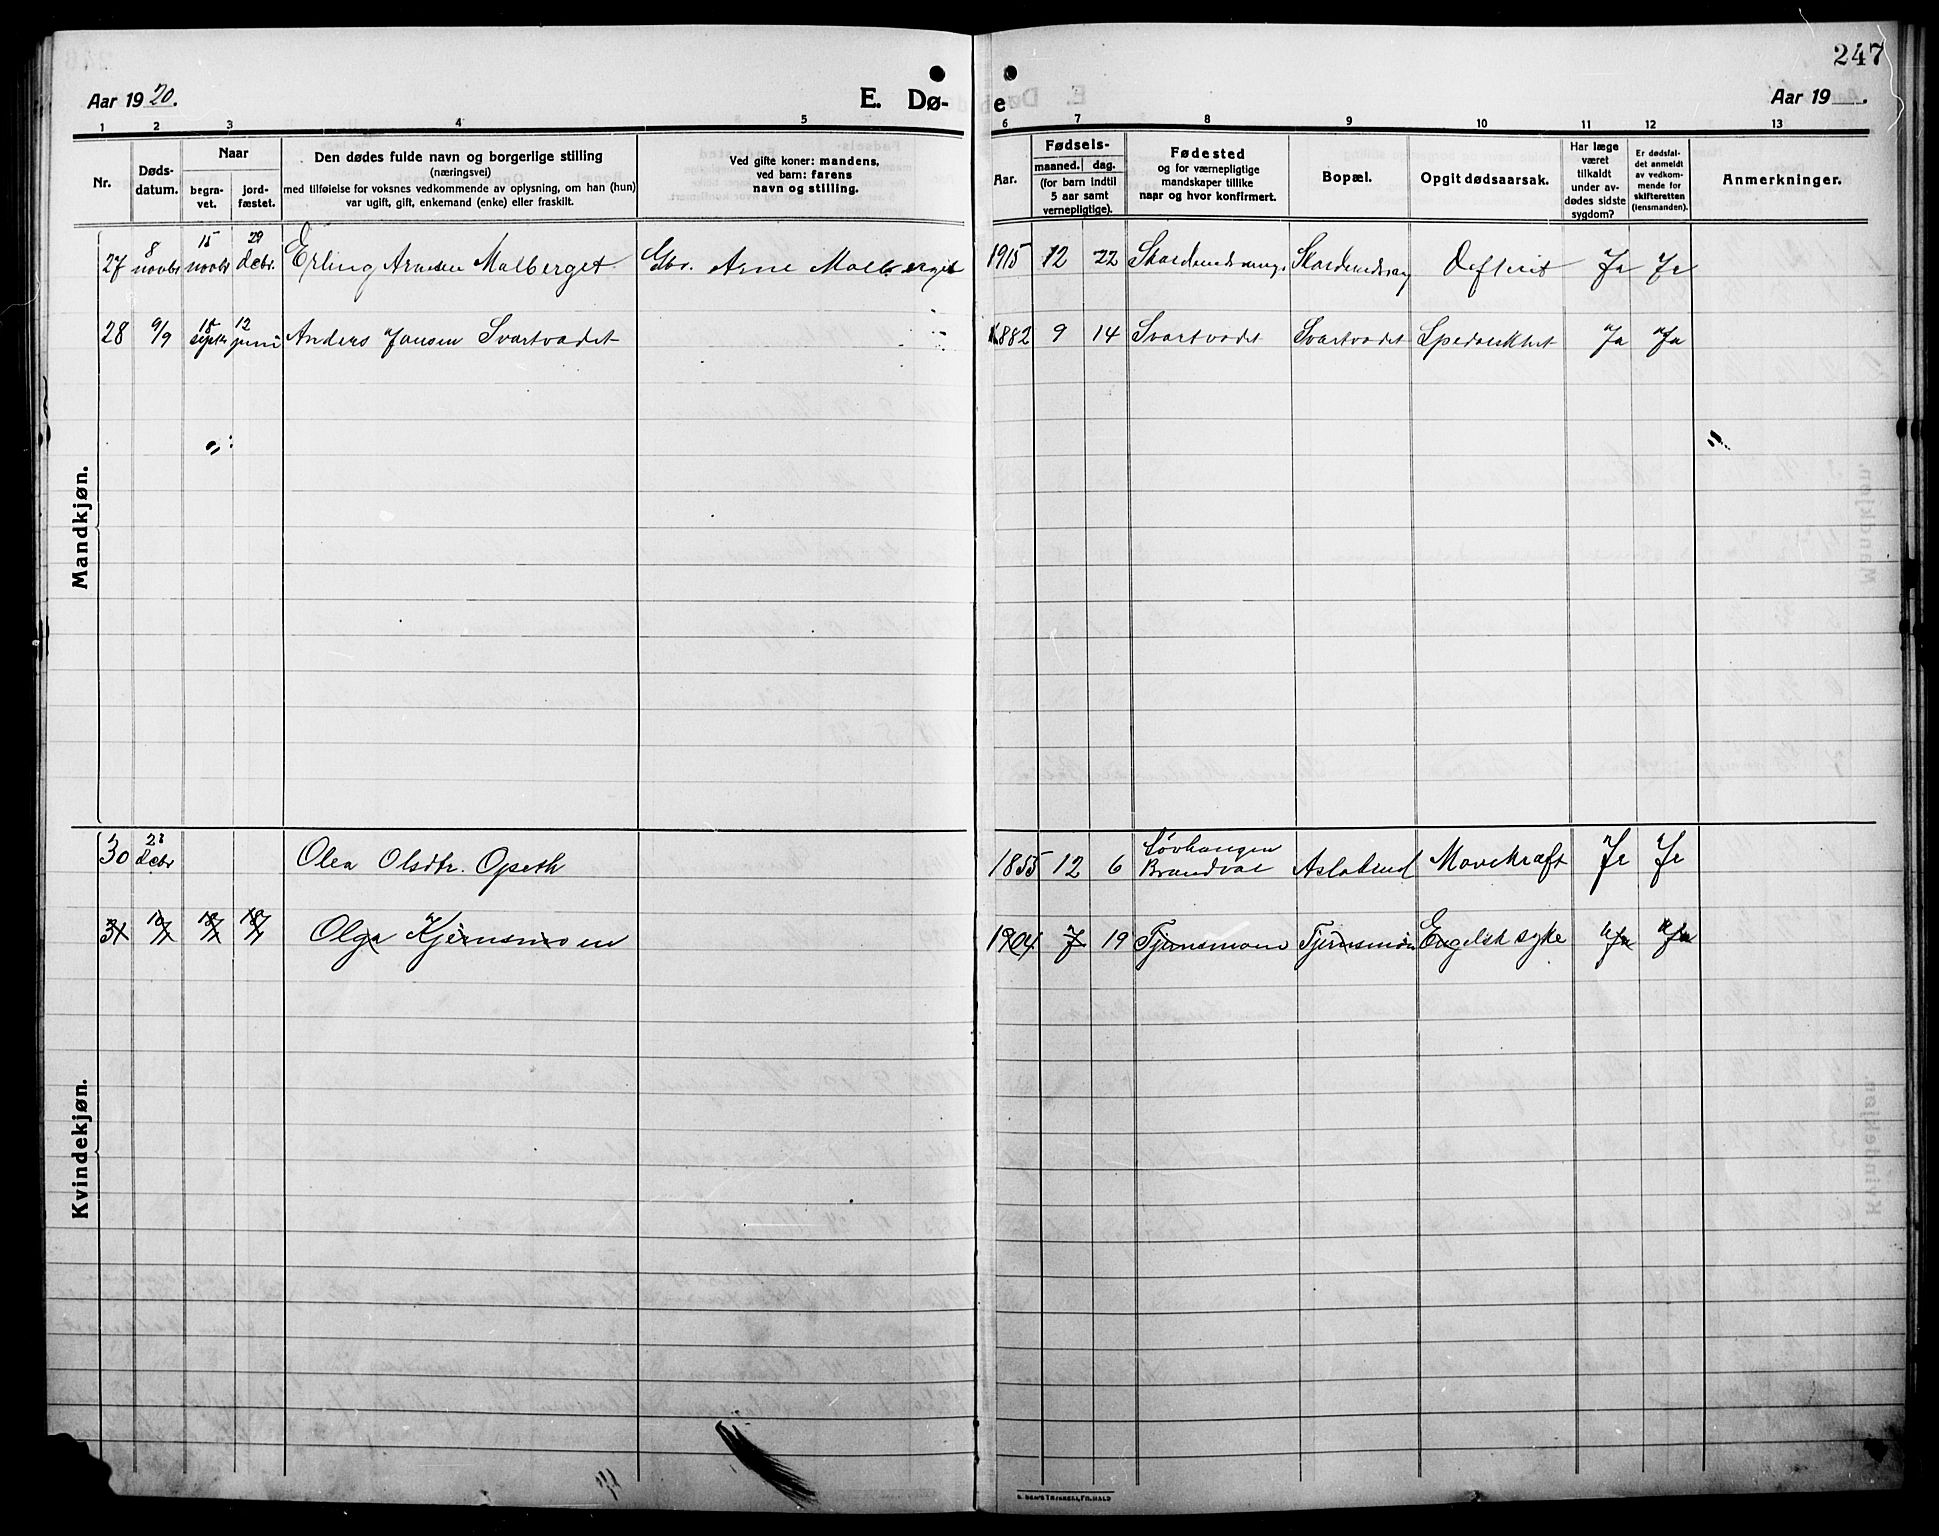 247
Aar 1920.
E. Dø-
e
Aar 19 .
1 2 3 4 5 6 7 8 9 10 11 12 13
Nr.
Døds-
datum.
Naar
begra-
vet.
jord-
fæstet.
Den dødes fulde navn og borgerlige stilling
(næringsvei)
med tilføielse for voksnes vedkommende av oplysning, om han (hun)
var ugift, gift, enkemand (enke) eller fraskilt.
Ved gifte koner: mandens,
ved barn: farens
navn og stilling.
Aar.
Fødsels-
maaned. dag.
(for barn indtil
5 aar samt
vernepligtige).
Fødested
og for værnepligtige
mandskaper tillike
naar og hvor konfirmert.
Bopæl.
Opgit dødsaarsak.
Har læge
været
tilkaldt
under av-
dødes sidste
sygdom?
Er dødsfal-
det anmeldt
av vedkom-
mende for
skifteretten
(lensmanden).
Anmerkninger.
Mandkjøn.
27 8 novbr 15 novbr 29 dcbr. Erling Arnesen Malberget Gbr. Arne Malberget 1915 12 22 Ja Ja
28 9/9 15 septbr 12 juni Anders Jansen Svartvadet 1882 9 14 Svartvadet Svartvadet Spedalskhet Ja Ja
Kvindekjøn.
30 dcbr Olea Olsdtr. Opseth 1855 12 6 Løvhaugen
Brandval Aslabrud Mavekræft Ja Ja
31 Olga Kjernsmoen 1904 7 19 Tjernsmoen Tjernsmoen Engelsk syke Ja Ja